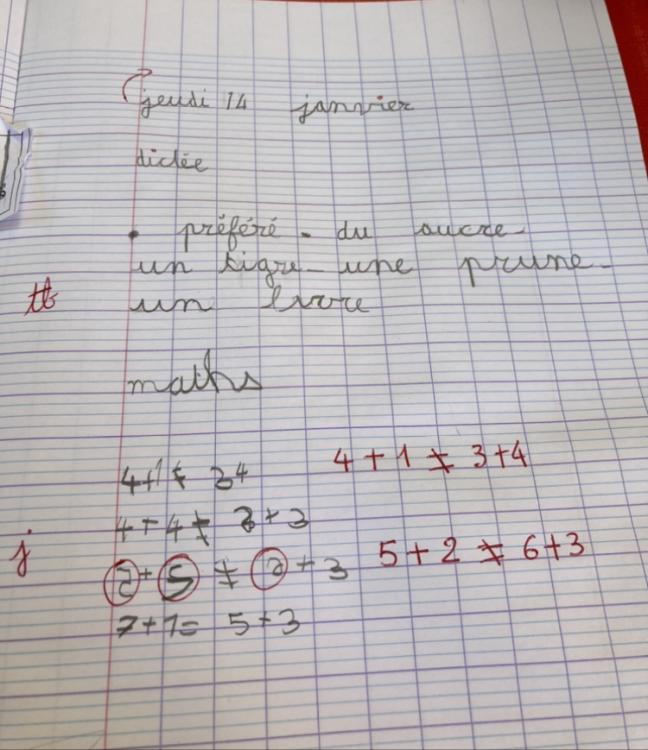 jeudi 14 janvier
dictée
• préféré - du sucre -
un tigre - une prune -
tb un livre
maths
4+1 ≠ 34 4+1 ≠ 3+4
4+4 ≠ 3+3
j 2+5 ≠ 2+3 5+2 ≠ 6+3
7+1= 5+3